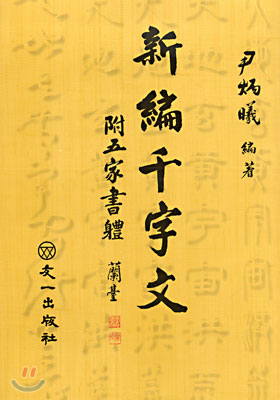 尹炳曦 編著
新編千字文
附五家書體
蘭臺
文一出版社